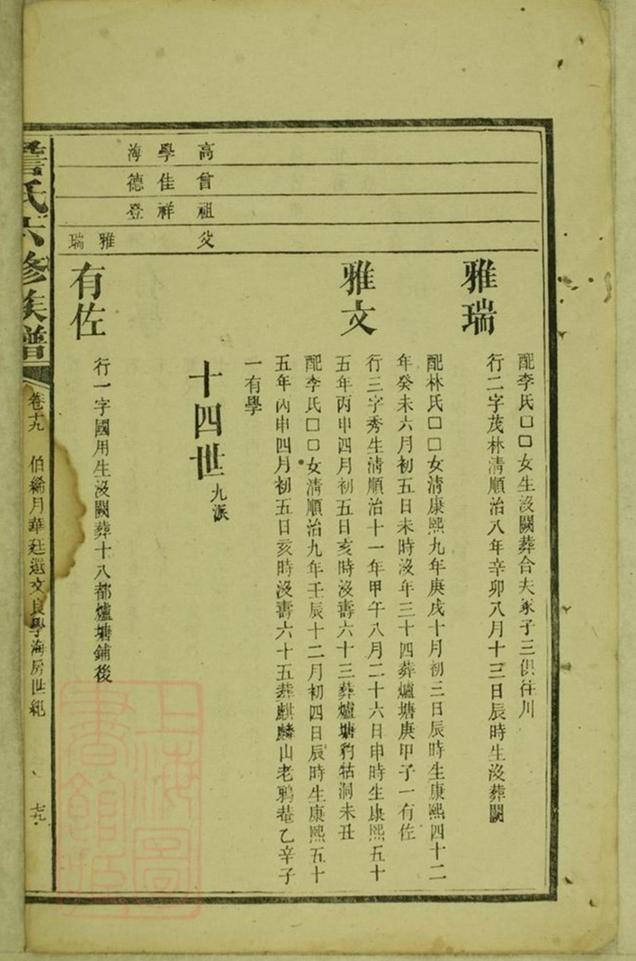 高 學 海
曾 佳 德
祖 祥 登
父 雅 瑞
配李氏□□女生沒闕葬合夫冢子三俱往川
雅瑞
行二字茂林清順治八年辛卯八月十三日辰時生沒葬闕
配林氏□□女清康熙九年庚戌十月初三日辰時生康熙四十二
年癸未六月初五日未時沒年三十四葬爐塘庚甲子一有佐
雅文
行三字秀生清順治十一年甲午八月二十六日申時生康熙五十
五年丙申四月初五日亥時沒壽六十三葬爐塘豹牯洞未丑
配李氏□□女清順治九年壬辰十二月初四日辰時生康熙五十
五年丙申四月初五日亥時沒壽六十五葬麒麟山老鴉巷乙辛子
一有學
十四世 九派
有佐
行一字國用生沒闕葬十八都爐塘鋪後
氏六修族譜
卷十九 伯 月華廷選文良學海房世紀 七九
上海圖書館藏